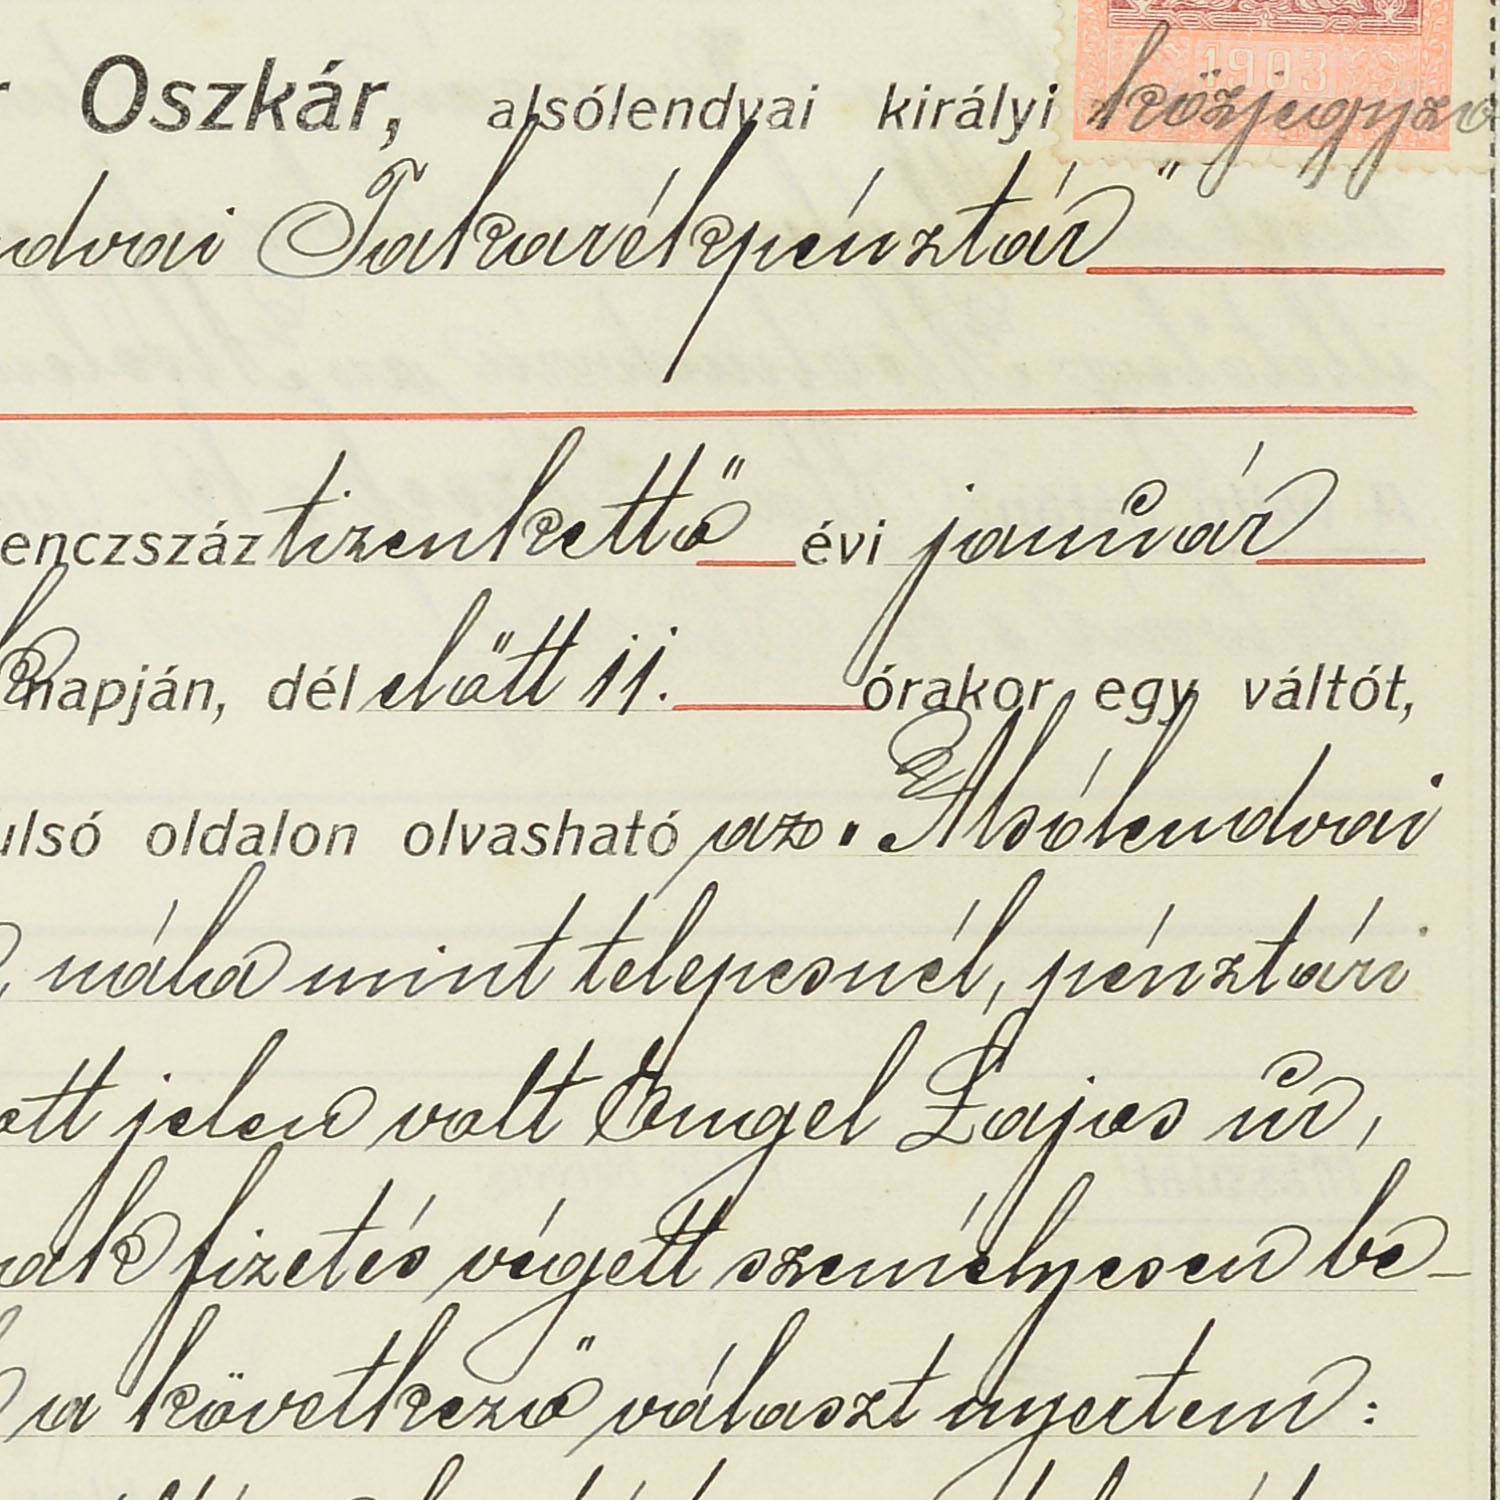 1903
Oszkár, alsólendvai királyi közjegyző
Takarékpénztár"
tizenkettő évi január
napján, dél előtt 11. órakor egy váltót,
oldalon olvasható az "Alsólendvai
nála mint telepesnél, pénztári
jelen volt Engel Lajos úr,
fizetés végett személyesen be-
a következő választ nyertem: